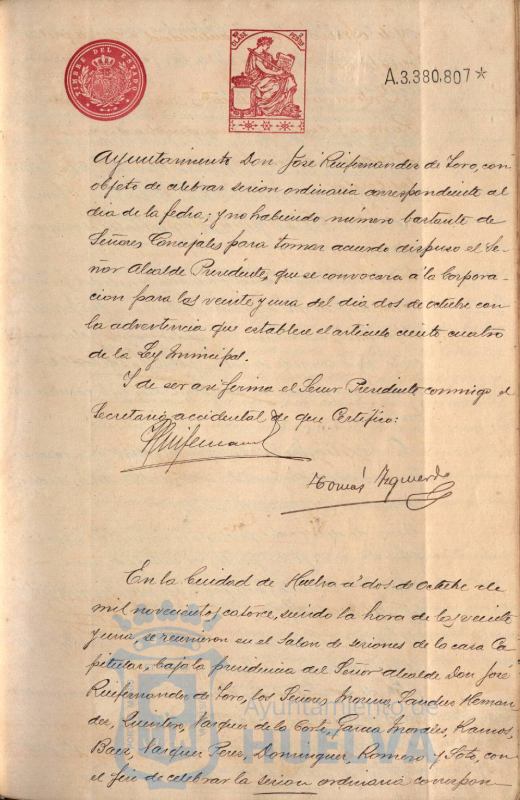 TIMBRE DEL ESTADO
CLASE
A.3.380.807*
Ayuntamiento Don José Ruifernandez de Toro, con
objeto de celebrar sesion ordinaria correspondiente al
dia de la fecha; y no habiendo número bastante de
Señores Concejales para tomar acuerdo dispuso el Se-
ñor Alcalde Presidente, que se convocara á la Corpora-
cion para las veinte y una del dia dos de octubre con
la advertencia que establece el articulo ciento cuatro
de la Ley Municipal.
Y de ser asi firma el Señor Presidente conmigo el
Secretario accidental de que Certifico:
Tomás Izquierdo
En la Ciudad de Huelva á dos de Octubre de
mil novecientos catorce, siendo la hora de las veinte
y una, se reunieron en el Salon de sesiones de la casa Ca-
pitular, bajo la presidencia del Señor Alcalde Don José
Ruifernandez de Toro, los Señores Sanchez Hernan-
dez, Quintero, Vazquez de la Corte, Garcia Morales, Ramos,
Baez, Vazquez Perez, Dominguez, Romero y Soto, con
el fin de celebrar la sesion ordinaria correspon-
Ayuntamiento de
HUELVA